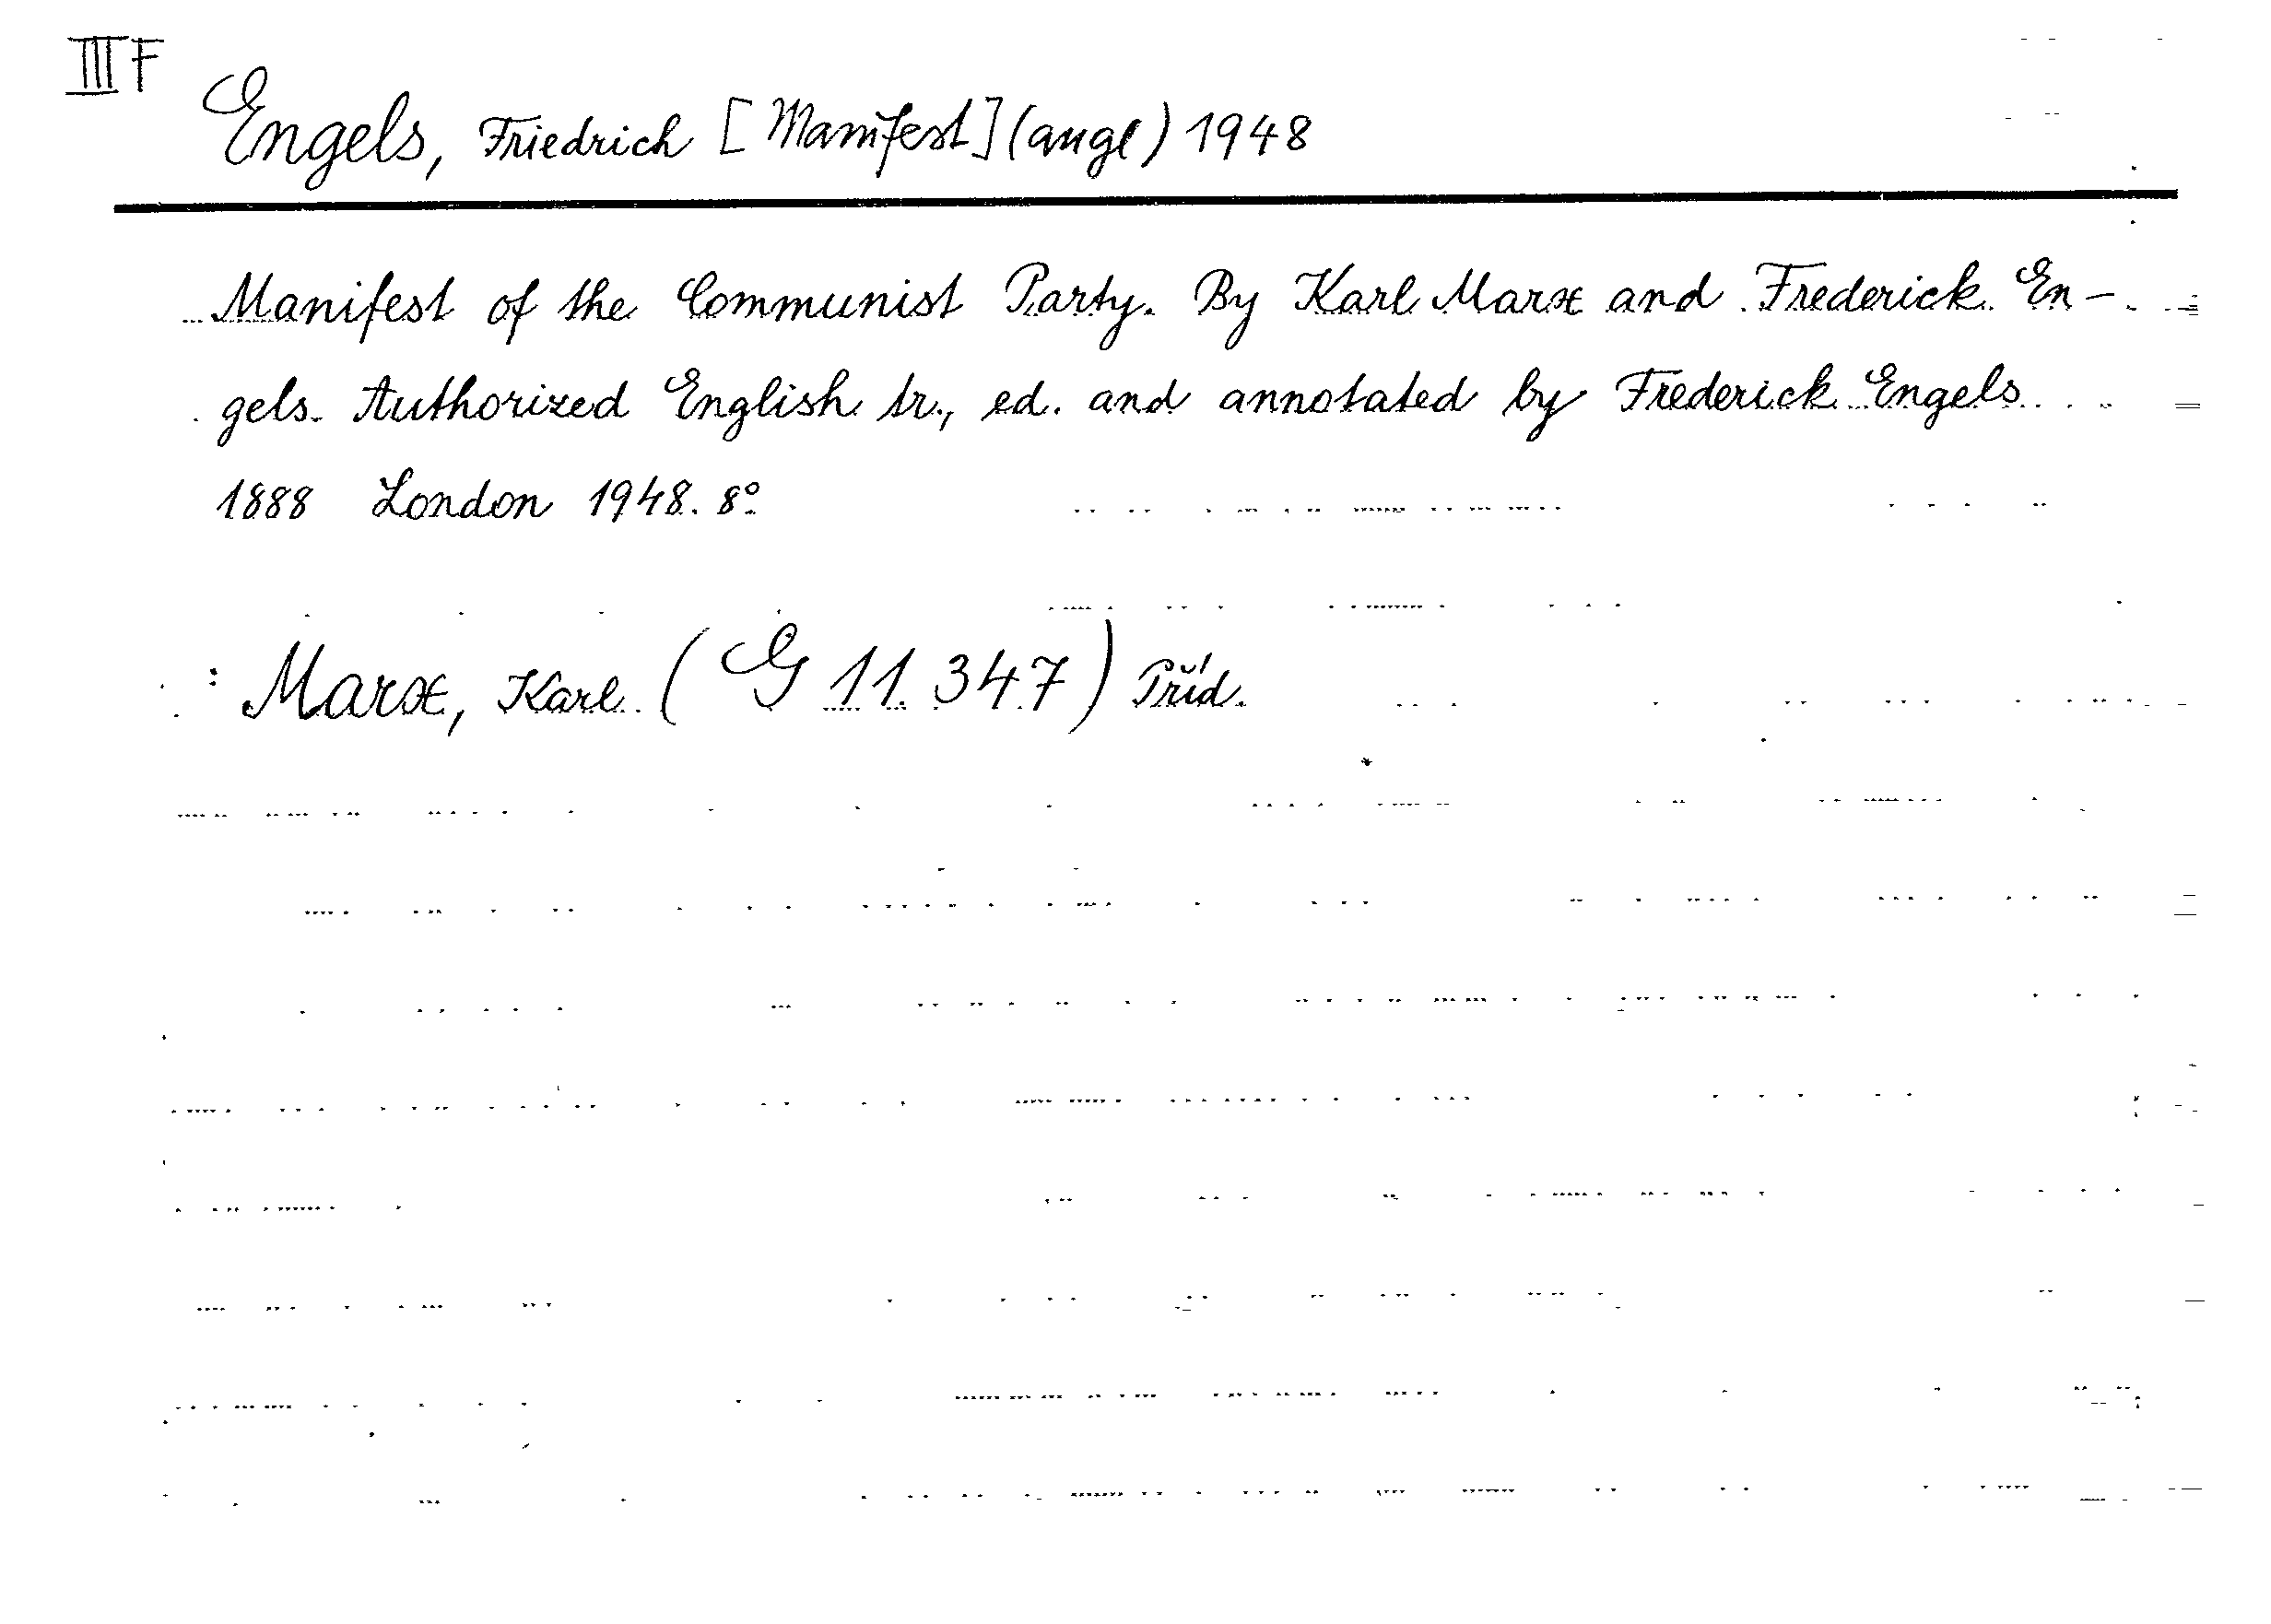 III F
Engels, Friedrich [Manifest] (angl) 1948
Manifest of the Communist Party. By Karl Marx and Frederick En-
gels. Authorized English tr., ed. and annotated by Frederick Engels
1888 London 1948. 8°
: Marx, Karl (G 11.347) Příd.